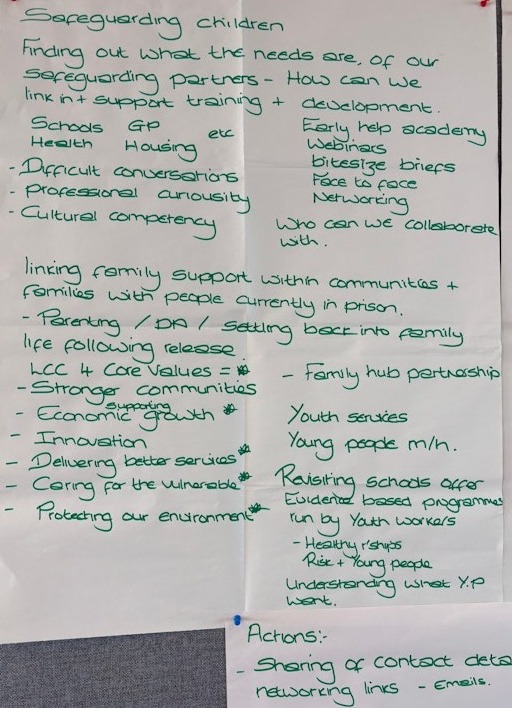 Safeguarding children
Finding out what the needs are, of our
safeguarding partners - How can we
link in + support training + development.
Schools GP etc
Health Housing
- Difficult conversations
- Professional curiousity
- Cultural competency
Early help academy
Webinars
bitesize briefs
Face to face
Networking
Who can we collaborate
with.
linking family support within communities +
families with people currently in prison.
- Parenting / DA / settling back into family
life following release.
LCC 4 Core Values = *
- Stronger communities
- Economic supporting growth *
- Innovation
- Delivering better services *
- Caring for the vulnerable *
- Protecting our environment *
- Family hub partnership
Youth services
Young people m/h.
Revisiting schools offer
Evidence based programmes
run by Youth workers
- Healthy r'ships
Risk + Young people
Understanding what Y.P
want.
Actions:-
- Sharing of contact deta
networking links - Emails.